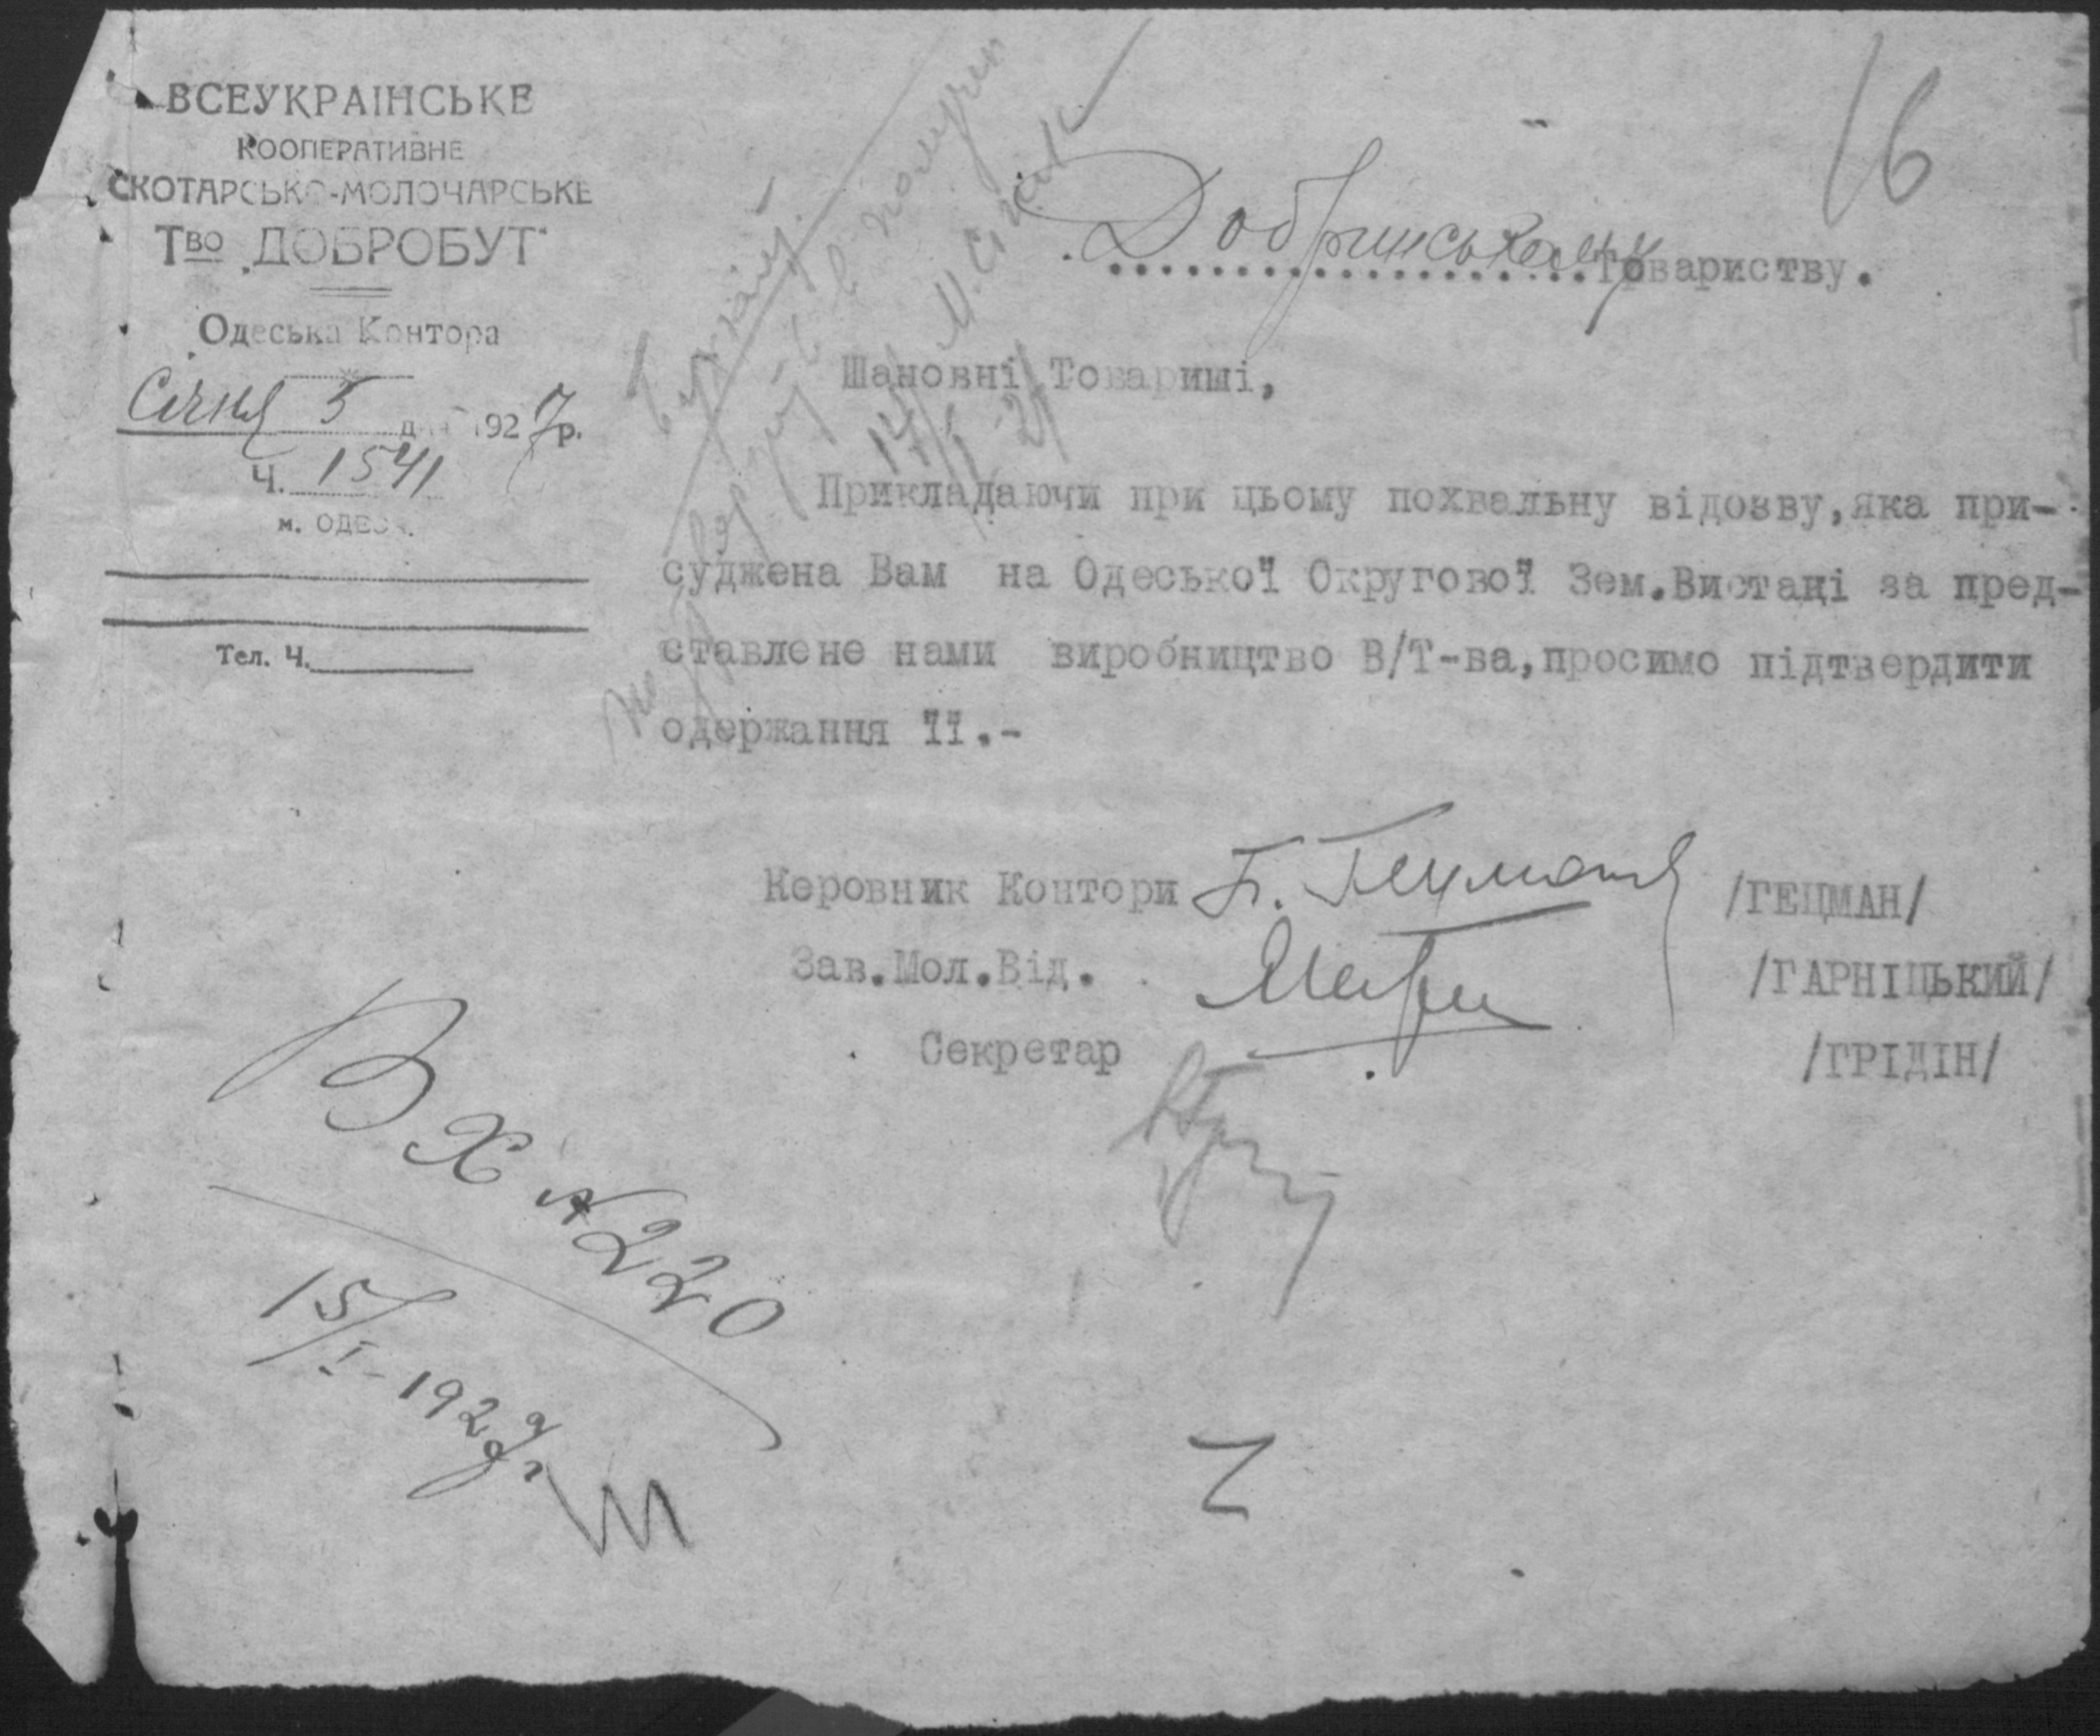 ВСЕУКРАІНСЬКЕ
КООПЕРАТИВНЕ
СКОТАРСЬКО-МОЛОЧАРСЬКЕ
Тво „ДОБРОБУТ"
Одеська Контора
Січня 5 дня 1927р.
Ч. 1541
м. ОДЕСА.
Тел. Ч.
16
Добринському Товариству.
Шановні Товариші,
Прикладаючи при цьому похвальну відозву,яка при-
суджена Вам на Одеської Округової Зем.Вистаці за пред-
ставлене нами виробництво В/Т-ва,просимо підтвердити
одержання її.-
Керовник Контори Б. Гецман /ГЕЦМАН/
Зав.Мол.Від. /ГАРНІЦЬКИЙ/
Секретар /ГРІДІН/
Вх №220
15/I-1927г.